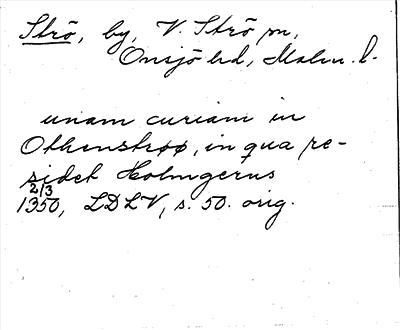 Strö, by, V. Strö sn,
Onsjö hd, Malm. l.
unam curiam in
Othenstrøø, in qua re-
sidet Holmgerus
2/3
1350, LDLV, s. 50. orig.